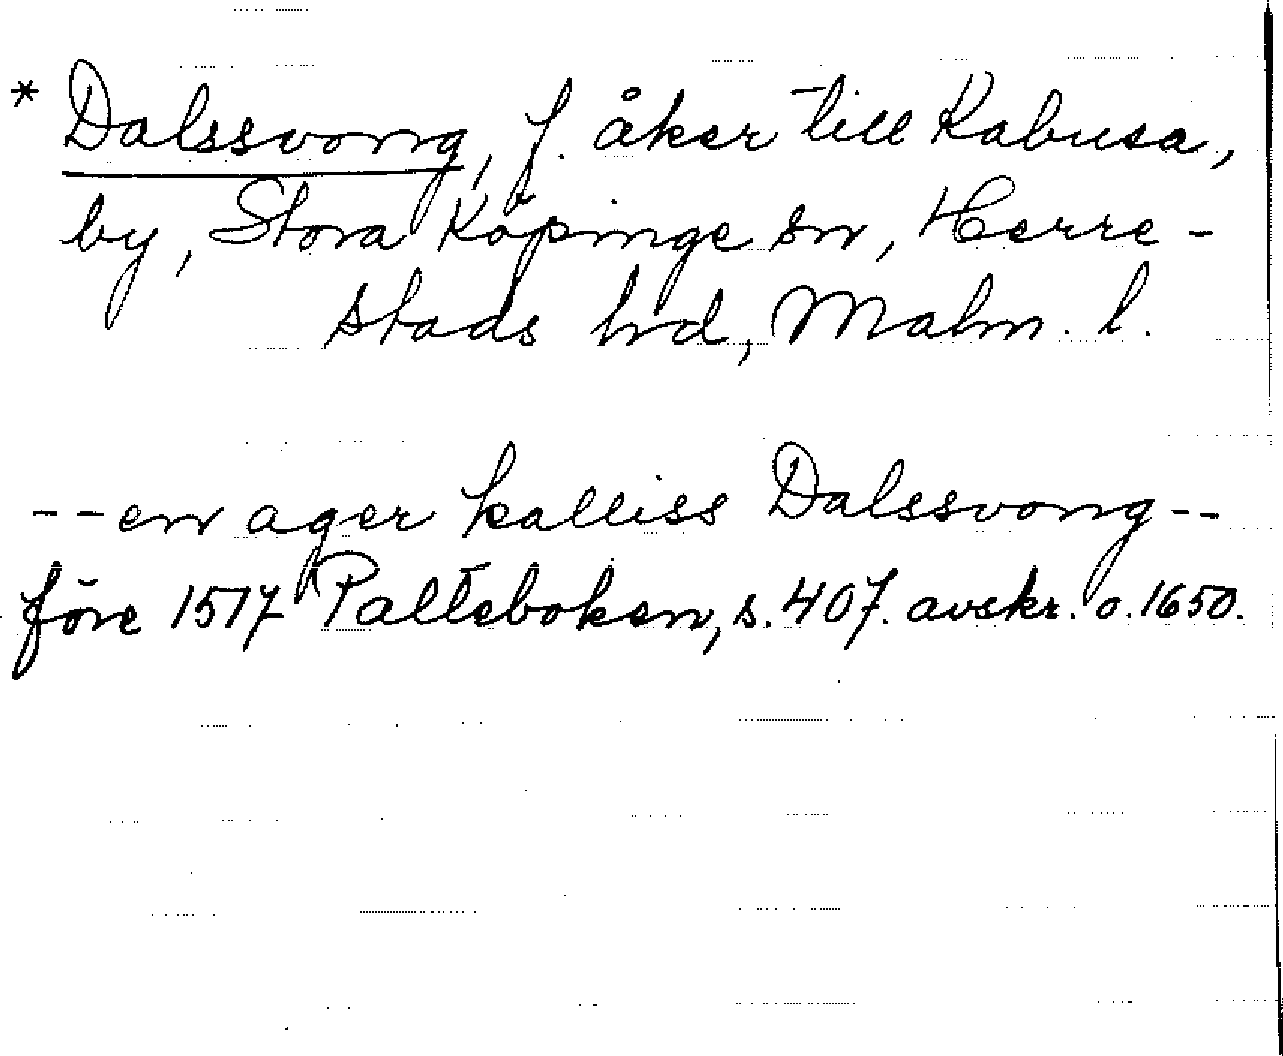 * Dalssvong, f. åker till Kabusa,
by, Stora Köpinge sn, Herre-
stads hd, Malm. l.
-- en ager kalliss Dalssvong --
före 1517 Palteboken, s. 407. avskr. o. 1650.